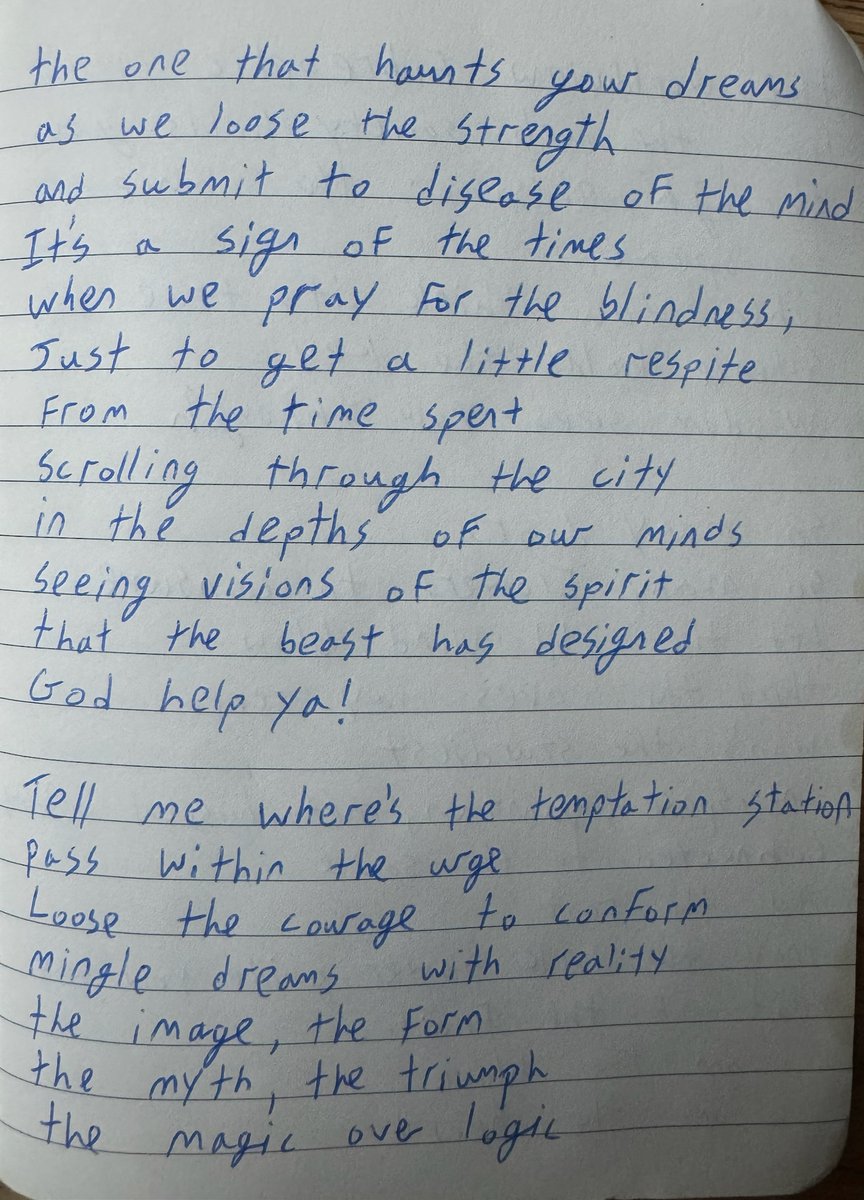 the one that haunts your dreams
as we loose the strength
and submit to disease of the mind
It's a sign of the times
when we pray for the blindness,
Just to get a little respite
From the time spent
scrolling through the city
in the depths of our minds
seeing visions of the spirit
that the beast has designed
God help ya!
Tell me where's the temptation station
pass within the urge
Loose the courage to conform
mingle dreams with reality
the image, the form
the myth, the triumph
the magic over logic